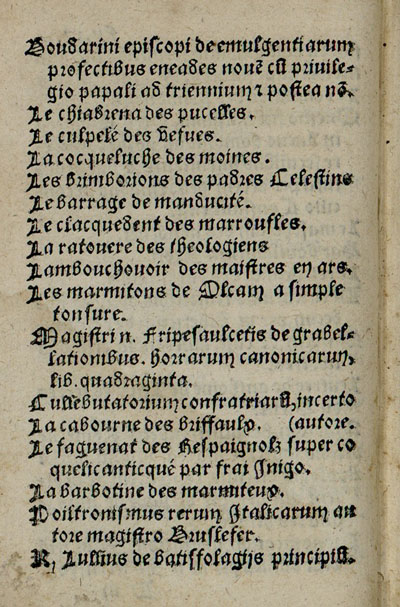 Boudarini episcopi de emulgentiarum
profectibus eneades nouē cū priuile-
gio papali ad triennium ⁊ postea nō.
Le chiabrena des pucelles.
Le culpelé des vefues.
La cocqueluche des moines.
Les brimborions des padres Celestins
Le barrage de manducité.
Le clacquedent des marroufles.
La ratouere des theologiens
Lambouchouoir des maistres en ars.
Les marmitons de Olcam a simple
tonsure.
Magistri n. Fripesaulcetis de grabel-
lationibus. horrarum canonicarum,
lib. quadraginta.
Cullebutatorium confratriarū, incerto
La cabourne des briffaulx. (autore.
Le faguenat des Hespaignolz super co
quelicanticqué par frai Inigo.
La barbotine des marmiteux.
Poiltronismus rerum Italicarum au
tore magistro Bruslefer.
R, Lullius de batisfolagijs principiū.